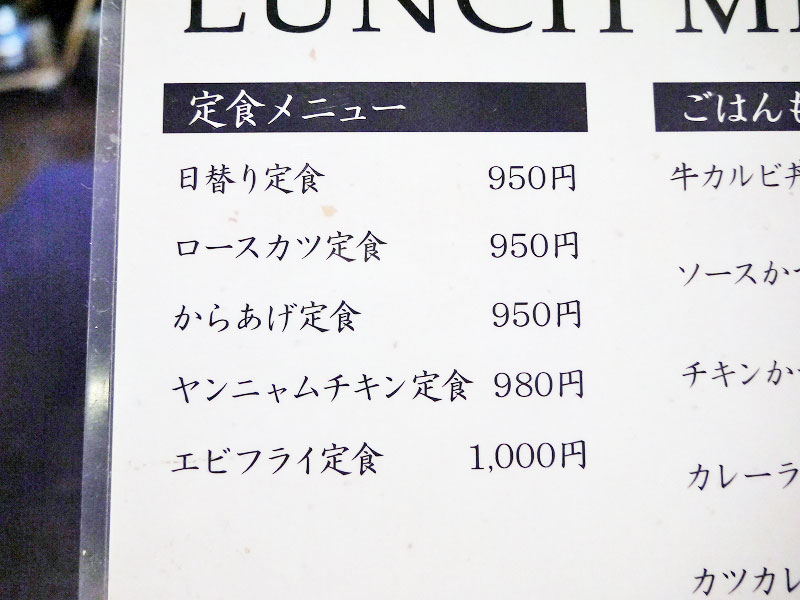 LUNCH
定食メニュー
日替り定食 950円
ロースカツ定食 950円
からあげ定食 950円
ヤンニャムチキン定食 980円
エビフライ定食 1,000円
ごはんも
牛カルビ丼
ソースか
チキンか
カレーラ
カツカレ